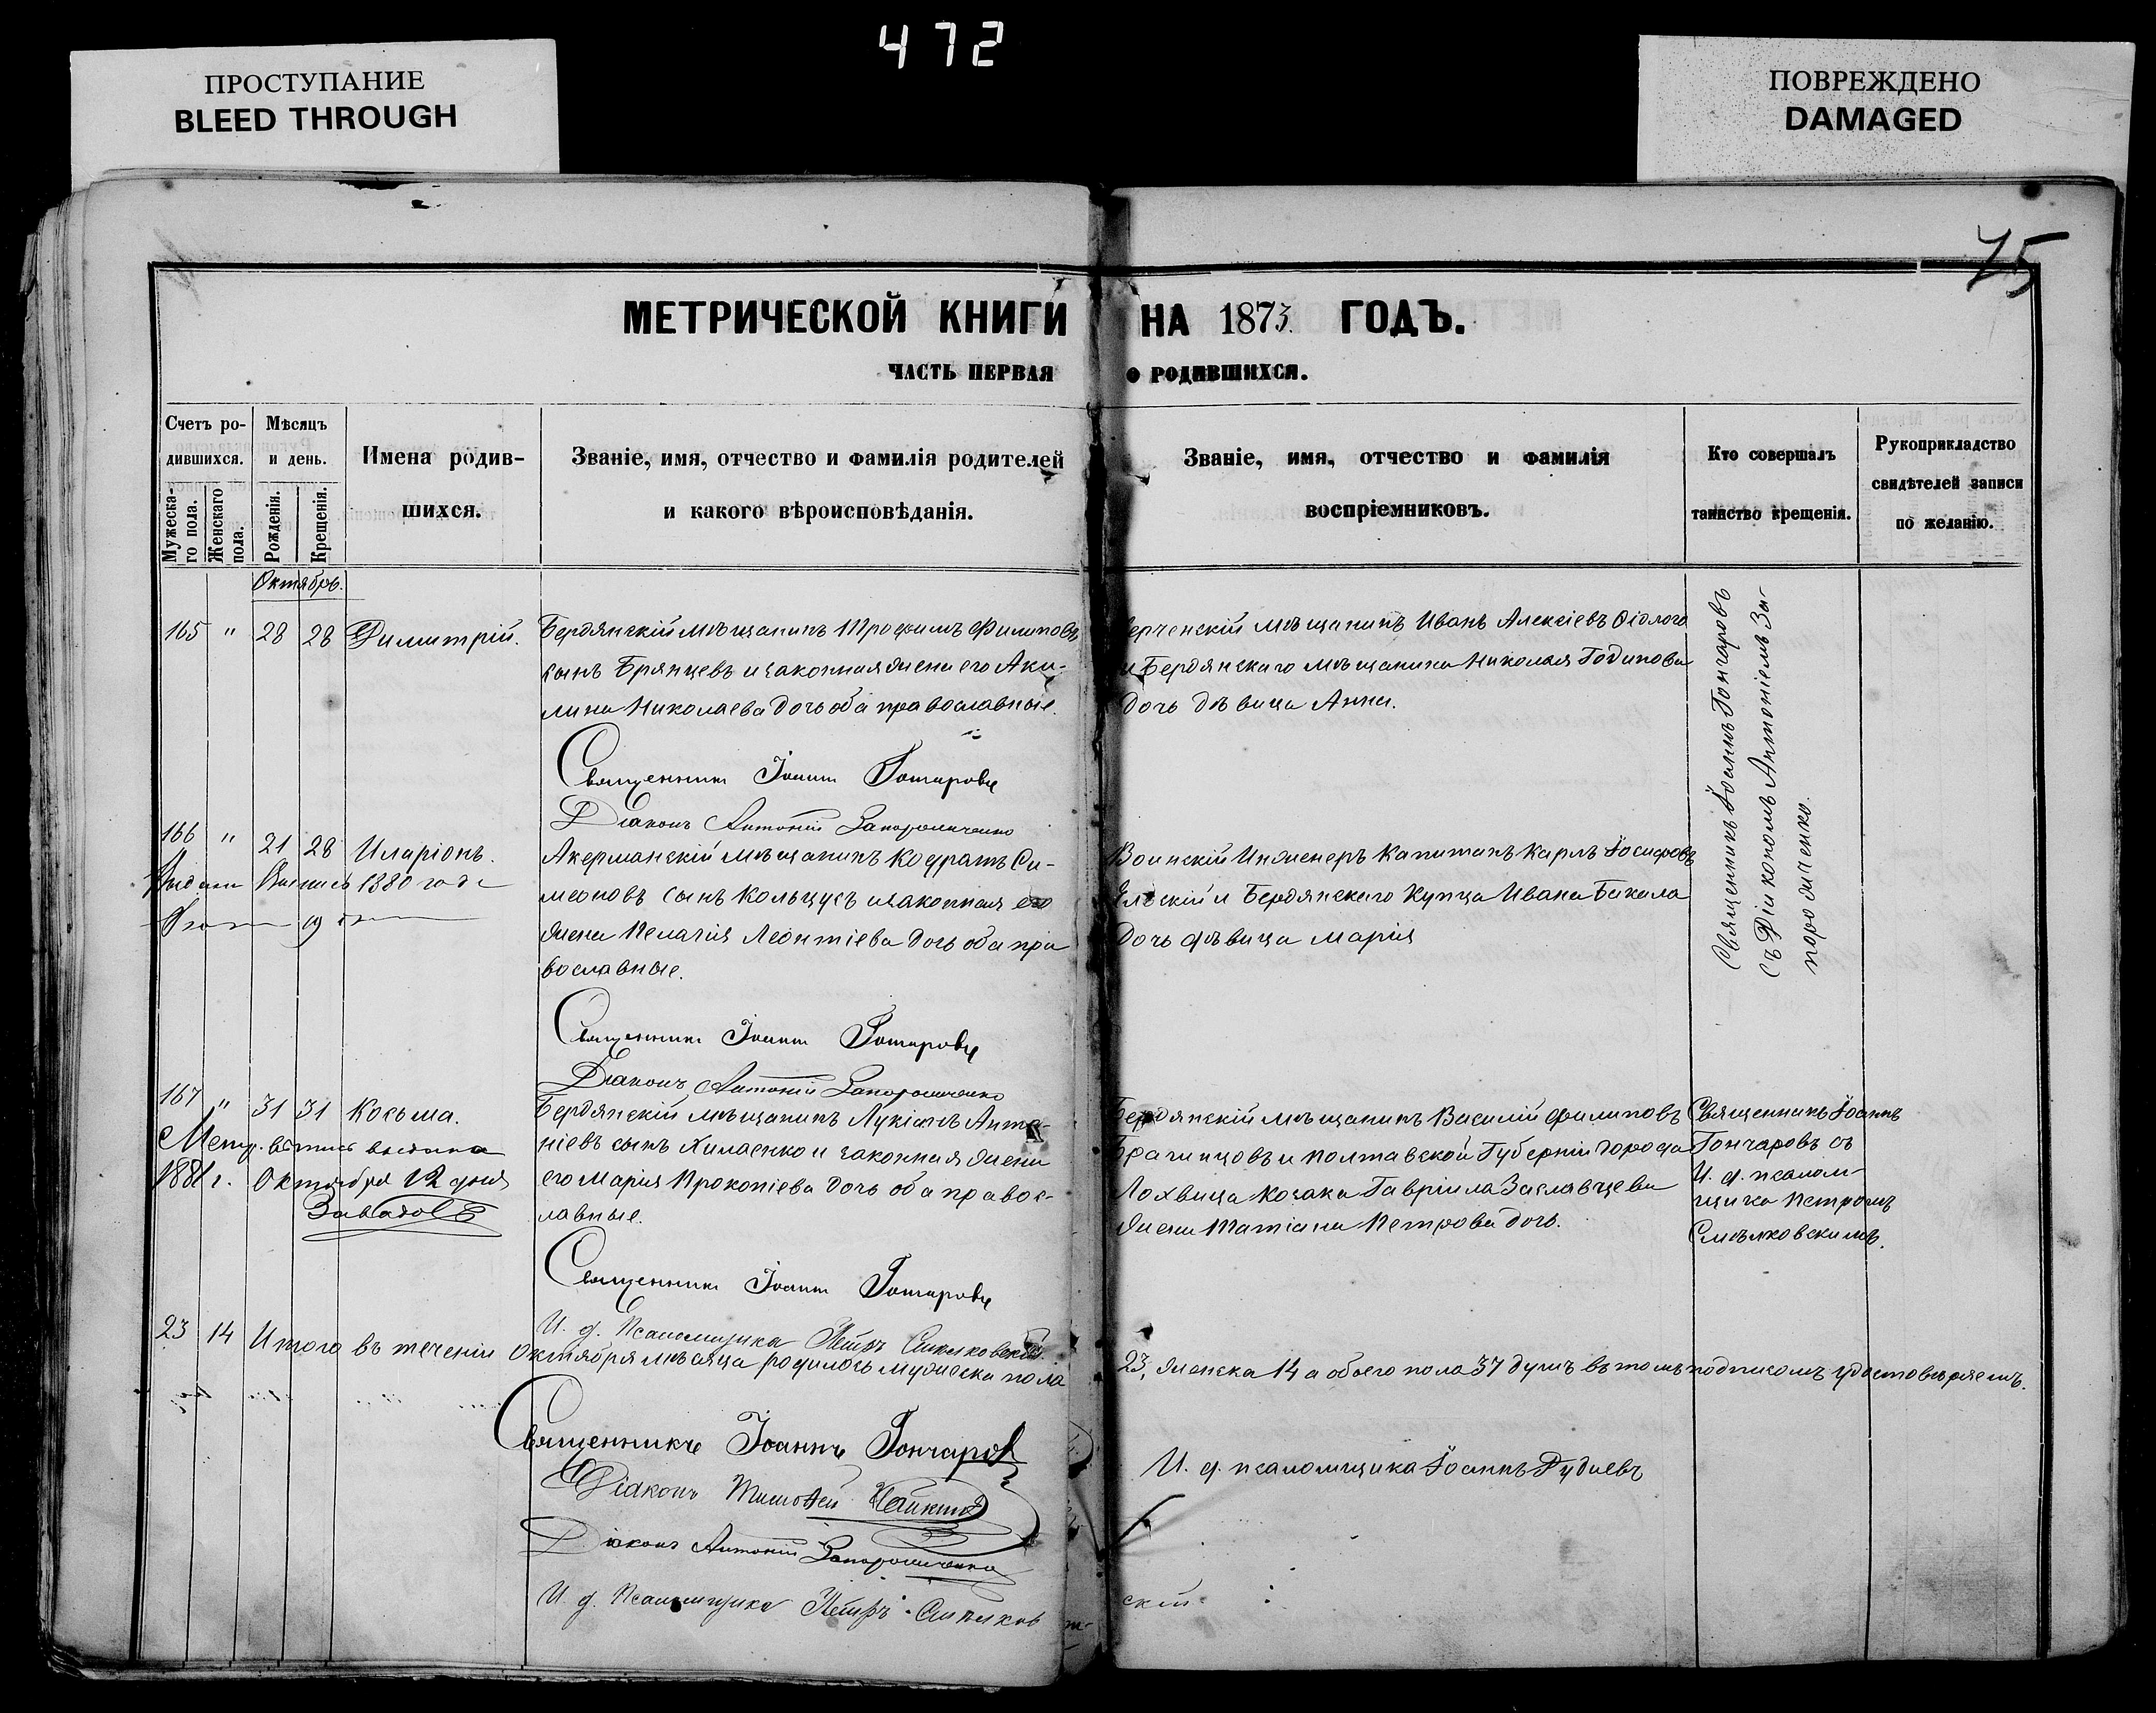 472
ПРОСТУПАНИЕ
BLEED THROUGH
ПОВРЕЖДЕНО
DAMAGED
75
МЕТРИЧЕСКОЙ КНИГИ НА 1873 ГОДЪ.
ЧАСТЬ ПЕРВАЯ О РОДИВШИХСЯ.
Счетъ ро-
дившихся.
Мужеска-
го пола.
Женскаго
пола.
Мѣсяцъ
и день.
Рожденія.
Крещенія.
Имена родив-
шихся.
Званіе, имя, отчество и фамилія родителей
и какого вѣроисповѣданія.
Званіе, имя, отчество и фамилія
воспріемниковъ.
Кто совершалъ
таинство крещенія.
Рукоприкладство
свидѣтелей записи
по желанію.
Октябрь.
165 " 28 28 Димитрій.
Бердянскій мѣщанинъ Трофимъ Филиповъ
сынъ Брянцевъ и законная жена его Аки-
лина Николаева дочь оба православные.
Священникъ Іоаннъ Гончаровъ
Діаконъ Антоній Запорожченко
ерченскій мѣщанинъ Иванъ Алексіевъ
и Бердянскаго мѣщанина Николая Годинова
дочь дѣвица Анна.
Священникъ Іоаннъ Гончаровъ
съ Діакономъ Антоніемъ За-
порожченко.
166 " 21 28 Иларіонъ.
Выпись 1880 года
Акерманскій мѣщанинъ Кодратъ Си-
меоновъ сынъ Кольцусъ и законная его
жена Пелагія Леонтіева дочь оба пра
вославные.
Священникъ Іоаннъ Гончаровъ
Діаконъ Антоній Запорожченко
Воинскій Инженеръ Капитанъ Карлъ Іосифовъ
и Бердянскаго Купца Ивана Бакала
дочь дѣвица Марія
167 " 31 31 Косьма.
Метр. выпись выдана
1881 г. Октября 12 дня
Бердянскій мѣщанинъ Лукіанъ Анто-
ніевъ сынъ Хилаенко и законная жена
его Марія Прокопіева дочь оба правос-
лавные.
Священникъ Іоаннъ Гончаровъ
И. д. Псаломщика Петръ
Бердянскій мѣщанинъ Василій Филиповъ
и Полтавской Губерніи города
Лохвица козака Гавріила Заславцева
жена Татіана Петрова дочь.
Священникъ Іоаннъ
Гончаровъ съ
И. д. псалом-
щика Петромъ
23 14 Итого въ теченіи Октября мѣсяца родилось мужеска пола 23, женска 14 а обоего пола 37 душъ въ томъ подписомъ удостовѣряемъ.
Священникъ Іоаннъ Гончаров
Діаконъ Тимофей
Діаконъ Антоній Запорожченко
И. д. Псаломщика Петръ
И. д. псаломщика Іоаннъ
скій